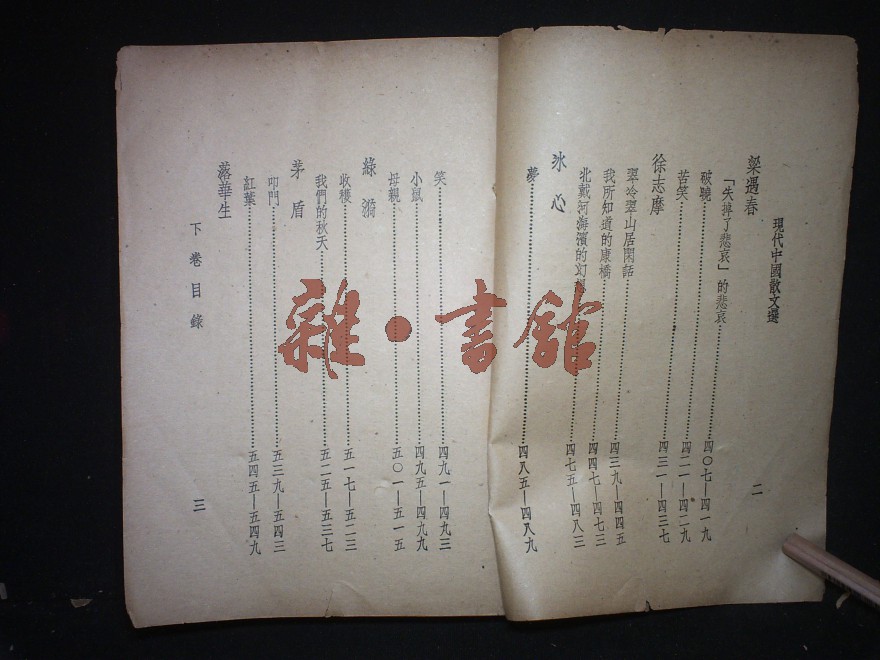 現代中國散文選
二
梁遇春
「失掉了悲哀」的悲哀……四〇七—四一九
破曉……四二一—四二九
苦笑……四三一—四三七
徐志摩
翡冷翠山居閑話……四三九—四四五
我所知道的康橋……四四七—四七三
北戴河海濱的幻想……四七五—四八三
冰心
夢……四八五—四八九
笑……四九一—四九三
小鼠……四九五—四九九
母親……五〇一—五一五
綠漪
收穫……五一七—五二三
我們的秋天……五二五—五三七
茅盾
叩門……五三九—五四三
紅葉……五四五—五四九
落華生
下卷目錄
三
雜·書館